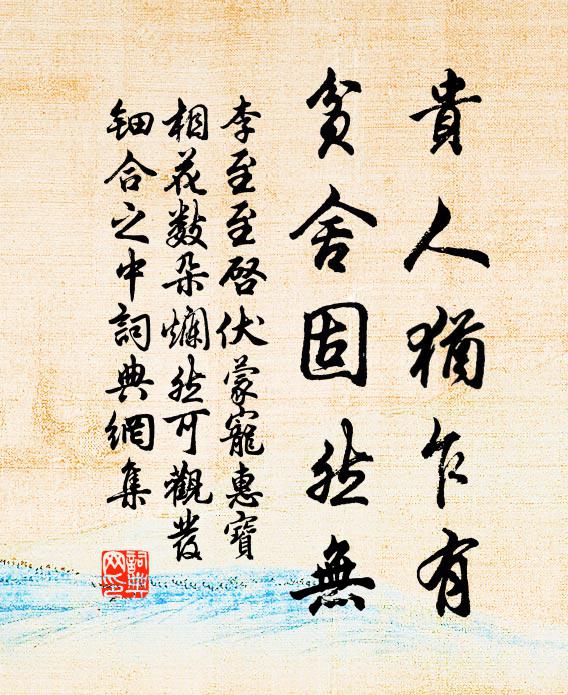 貴人猶乍有
貧舍固然無
李至至啓伏蒙寵惠寶
相花數朵爛然可觀發
鈿合之中詞典網集